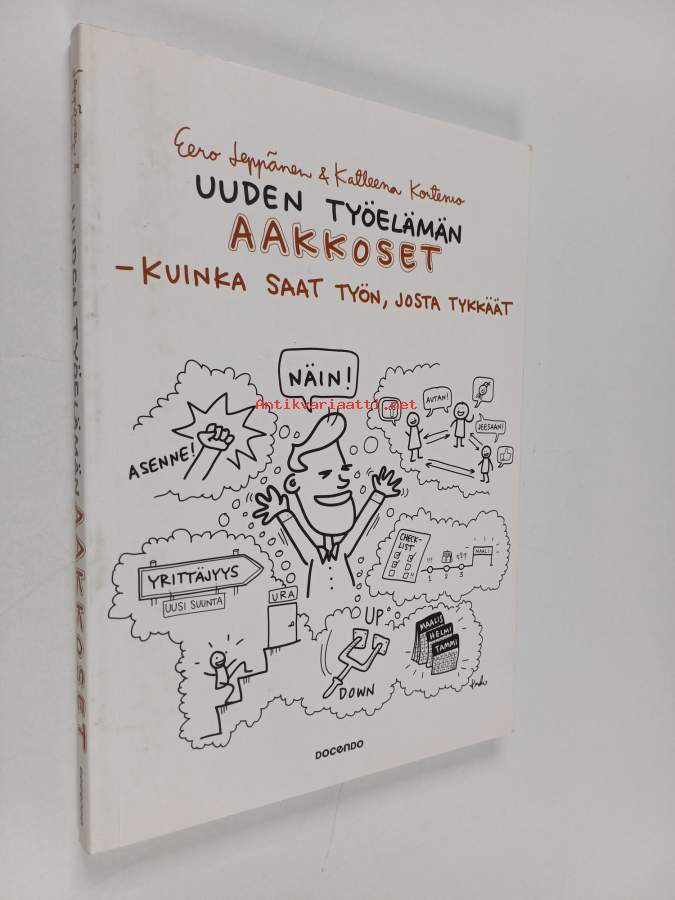 Eero Leppänen & Katleena Kortesuo
UUDEN TYÖELÄMÄN
AAKKOSET
–KUINKA SAAT TYÖN, JOSTA TYKKÄÄT
NÄIN!
Antikvariaatti.net
ASENNE!
AUTAN!
JEESAAN!
CHECK-
LIST
!!!
???
MAALI
1 2 3
YRITTÄJYYS
UUSI SUUNTA
URA
UP
DOWN
MAALIS
HELMI
TAMMI
DOCENDO
UUDEN TYÖELÄMÄN AAKKOSET